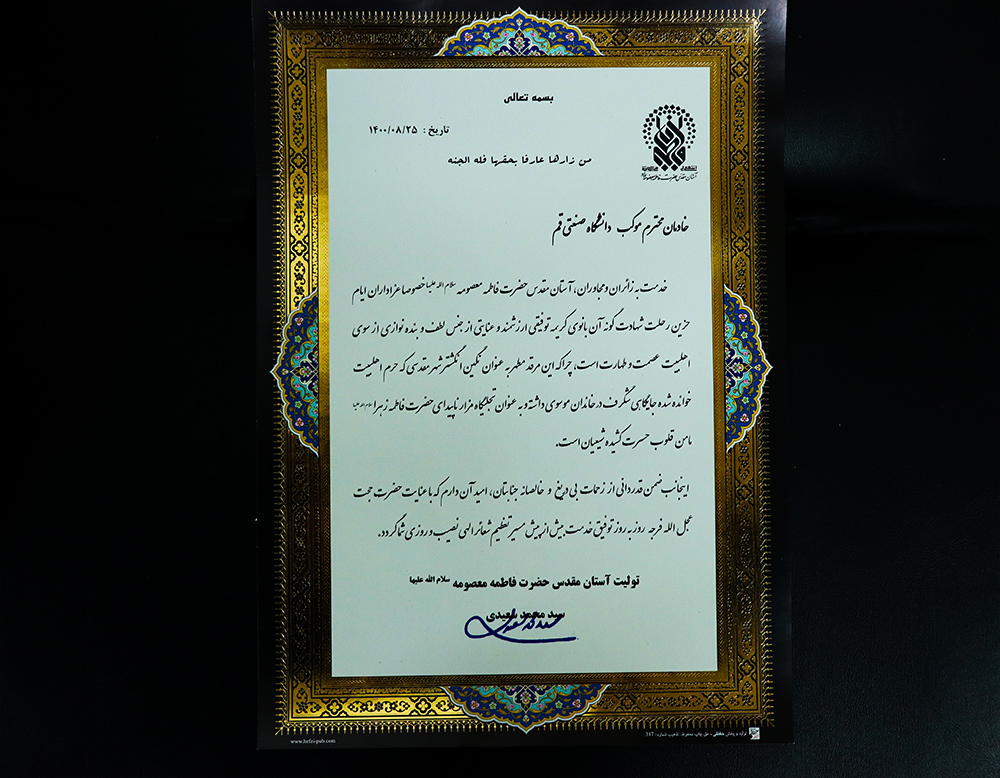 بسمه تعالی
تاریخ : ۱۴۰۰/۰۸/۲۵
من زارها عارفا بحقها فله الجنه
آستان مقدس حضرت فاطمه معصومه
خادمان محترم موکب دانشگاه صنعتی قم
خدمت به زائران و مجاوران، آستان مقدس حضرت فاطمه معصومه سلام الله علیها خصوصا عزاداران ایام
حزین رحلت شهادت گونه آن بانوی کریمه توفیقی ارزشمند و عنایتی از جنس لطف و بنده نوازی از سوی
اهلبیت عصمت و طهارت است، چراکه این مرقد مطهر به عنوان نگین انگشتر شهر مقدسی که حرم اهلبیت
خوانده شده جایگاهی شگرف در خاندان موسوی داشته و به عنوان تجلیگاه مزار ناپیدای حضرت فاطمه زهرا سلام الله علیها
مامن قلوب حسرت کشیده شیعیان است.
اینجانب ضمن قدردانی از زحمات بی دریغ و خالصانه جنابتان، امید آن دارم که با عنایت حضرت حجت
عجل الله فرجه روز به روز توفیق خدمت بیش از پیش مسیر تعظیم شعائر الهی نصیب و روزی شما گردد.
تولیت آستان مقدس حضرت فاطمه معصومه سلام الله علیها
سید محمد سعیدی
www.hefzi-pub.com
تولید و پخش حفظی ، حق چاپ محفوظ. تذهیب شماره: 317